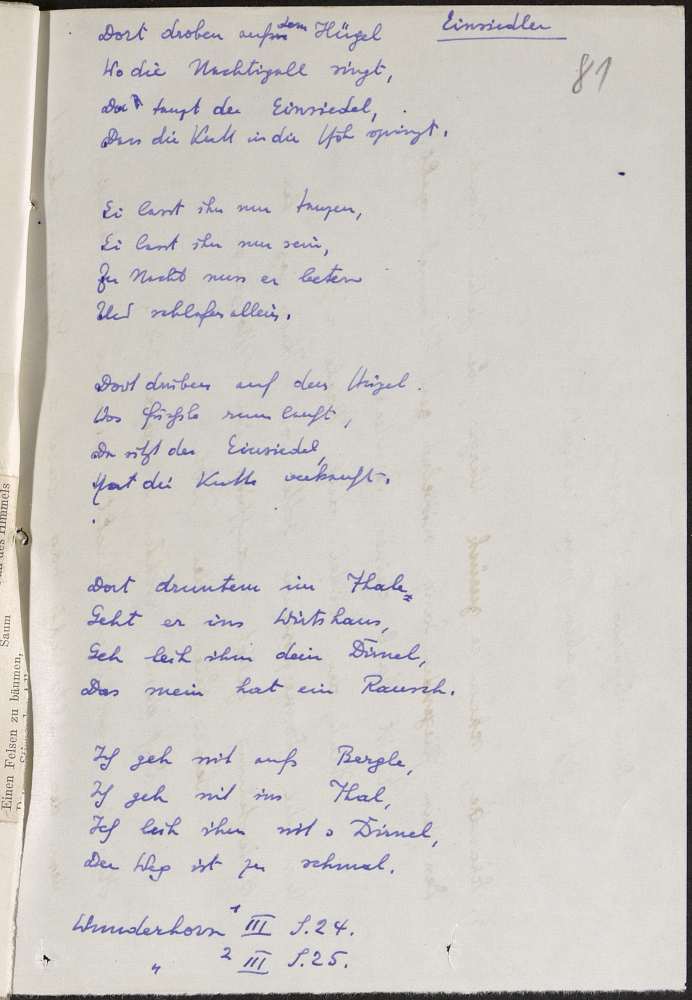 Einsiedler
81
Dort droben aufm dem Hügel
Wo die Nachtigall singt,
Da tanzt der Einsiedel,
Dass die Kutt in die Höh springt.
Ei lasst ihn nur tanzen,
Ei lasst ihn nur sein,
Zu Nacht muss er beten
Und schlafen allein.
Dort drüben auf dem Hügel.
Wos Füchsle rum lauft,
Da sitzt der Einsiedel,
Hat die Kutte verkauft.
Dort druntem im Thale
Geht er ins Wirtshaus,
Geh leih ihm dein Dirnel,
Das mein hat ein Rausch.
Ich geh nit aufs Bergle,
Ich geh nit ins Thal,
Ich leih ihm nit s Dirnel,
Der Weg ist zu schmal.
Wunderhorn 1 III S.24.
" 2 III S.25.
des Himmels
Saum
Einen Felsen zu bäumen,